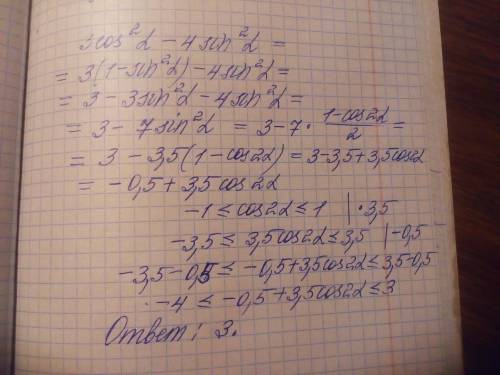 3cos²α - 4sin²α =
= 3(1-sin²α) - 4sin²α =
= 3 - 3sin²α - 4sin²α =
= 3 - 7sin²α = 3 - 7 · (1-cos2α)/2 =
= 3 - 3,5(1-cos2α) = 3-3,5+3,5cos2α
= -0,5 + 3,5cos2α
-1 ≤ cos2α ≤ 1 | ·3,5
-3,5 ≤ 3,5cos2α ≤ 3,5 | -0,5
-3,5-0,5 ≤ -0,5+3,5cos2α ≤ 3,5-0,5
-4 ≤ -0,5+3,5cos2α ≤ 3
Ответ: 3.